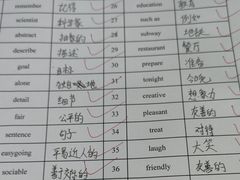 remember 记得 26 education 教育
scientist 科学家 27 such as 例如
abstract 抽象的 28 subway 地铁
describe 描述 29 restaurant 餐厅
goal 目标 30 prepare 准备
alone 31 tonight 今晚
detail 细节 32 creative 想象力
fair 公平的 33 pleasant 友善的
sentence 句子 34 treat 对待
easygoing 平易近人的 35 laugh 大笑
sociable 善于交际的 36 friendly 友善的